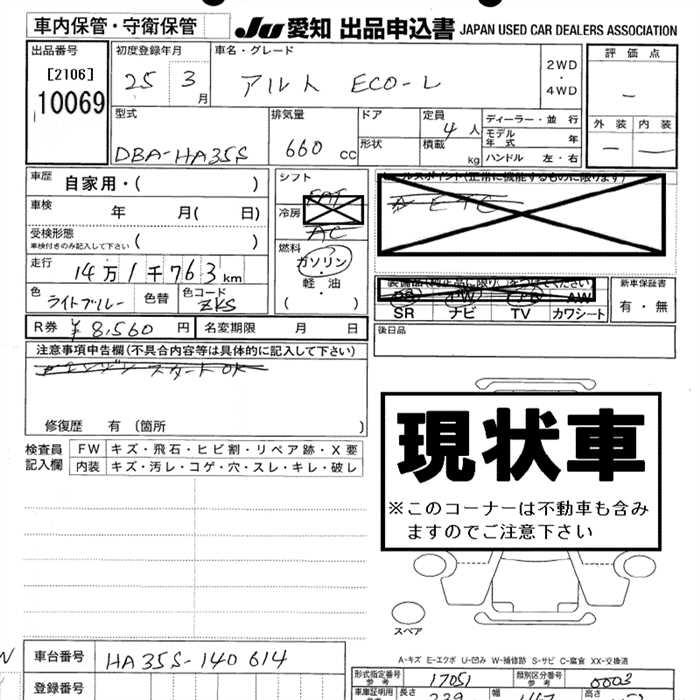 車内保管・守衛保管
JU 愛知 出品申込書 JAPAN USED CAR DEALERS ASSOCIATION
出品番号
[2106]
10069
初度登録年月
25 3月
車名・グレード
アルト ECO-L
2WD
・
4WD
評価点
—
外装 内装
— —
型式
DBA-HA35S
排気量
660 cc
ドア
形状
定員
4 人
積載
kg
ディーラー・並行
モデル年式 年
ハンドル 左・右
車歴 自家用・( )
車検 年 月( 日)
受検形態
車検付きのみ記入して下さい ( )
走行 14万1千763km
色 ライトブルー 色替 色コード ZKS
R券 ¥8,560 円 名変期限 月 日
シフト
FAT
冷房
AC
燃料
ガソリン
・
軽・油
( )
セールスポイント(正常に機能するものに限ります)
ETC
装備品(純正品に限り)○をつけてください
PS PW CD AW
SR ナビ TV カワシート
新車保証書
有・無
後日品
注意事項申告欄(不具合内容等は具体的に記入して下さい)
エンジンスタートOK
修復歴 有 〔箇所 〕
検査員記入欄
FW キズ・飛石・ヒビ割・リペア跡・X要
内装 キズ・汚レ・コゲ・穴・スレ・キレ・破レ
現状車
※このコーナーは不動車も含み
ますのでご注意下さい
スペア
A-キズ E-エクボ U-凹み W-補修跡 S-サビ C-腐食 XX-交換済
車台番号 HA35S-140614
登録番号
形式指定番号
参考
17051
類別区分番号
参考
0003
車庫証明用
長さ
339
幅
147
高さ